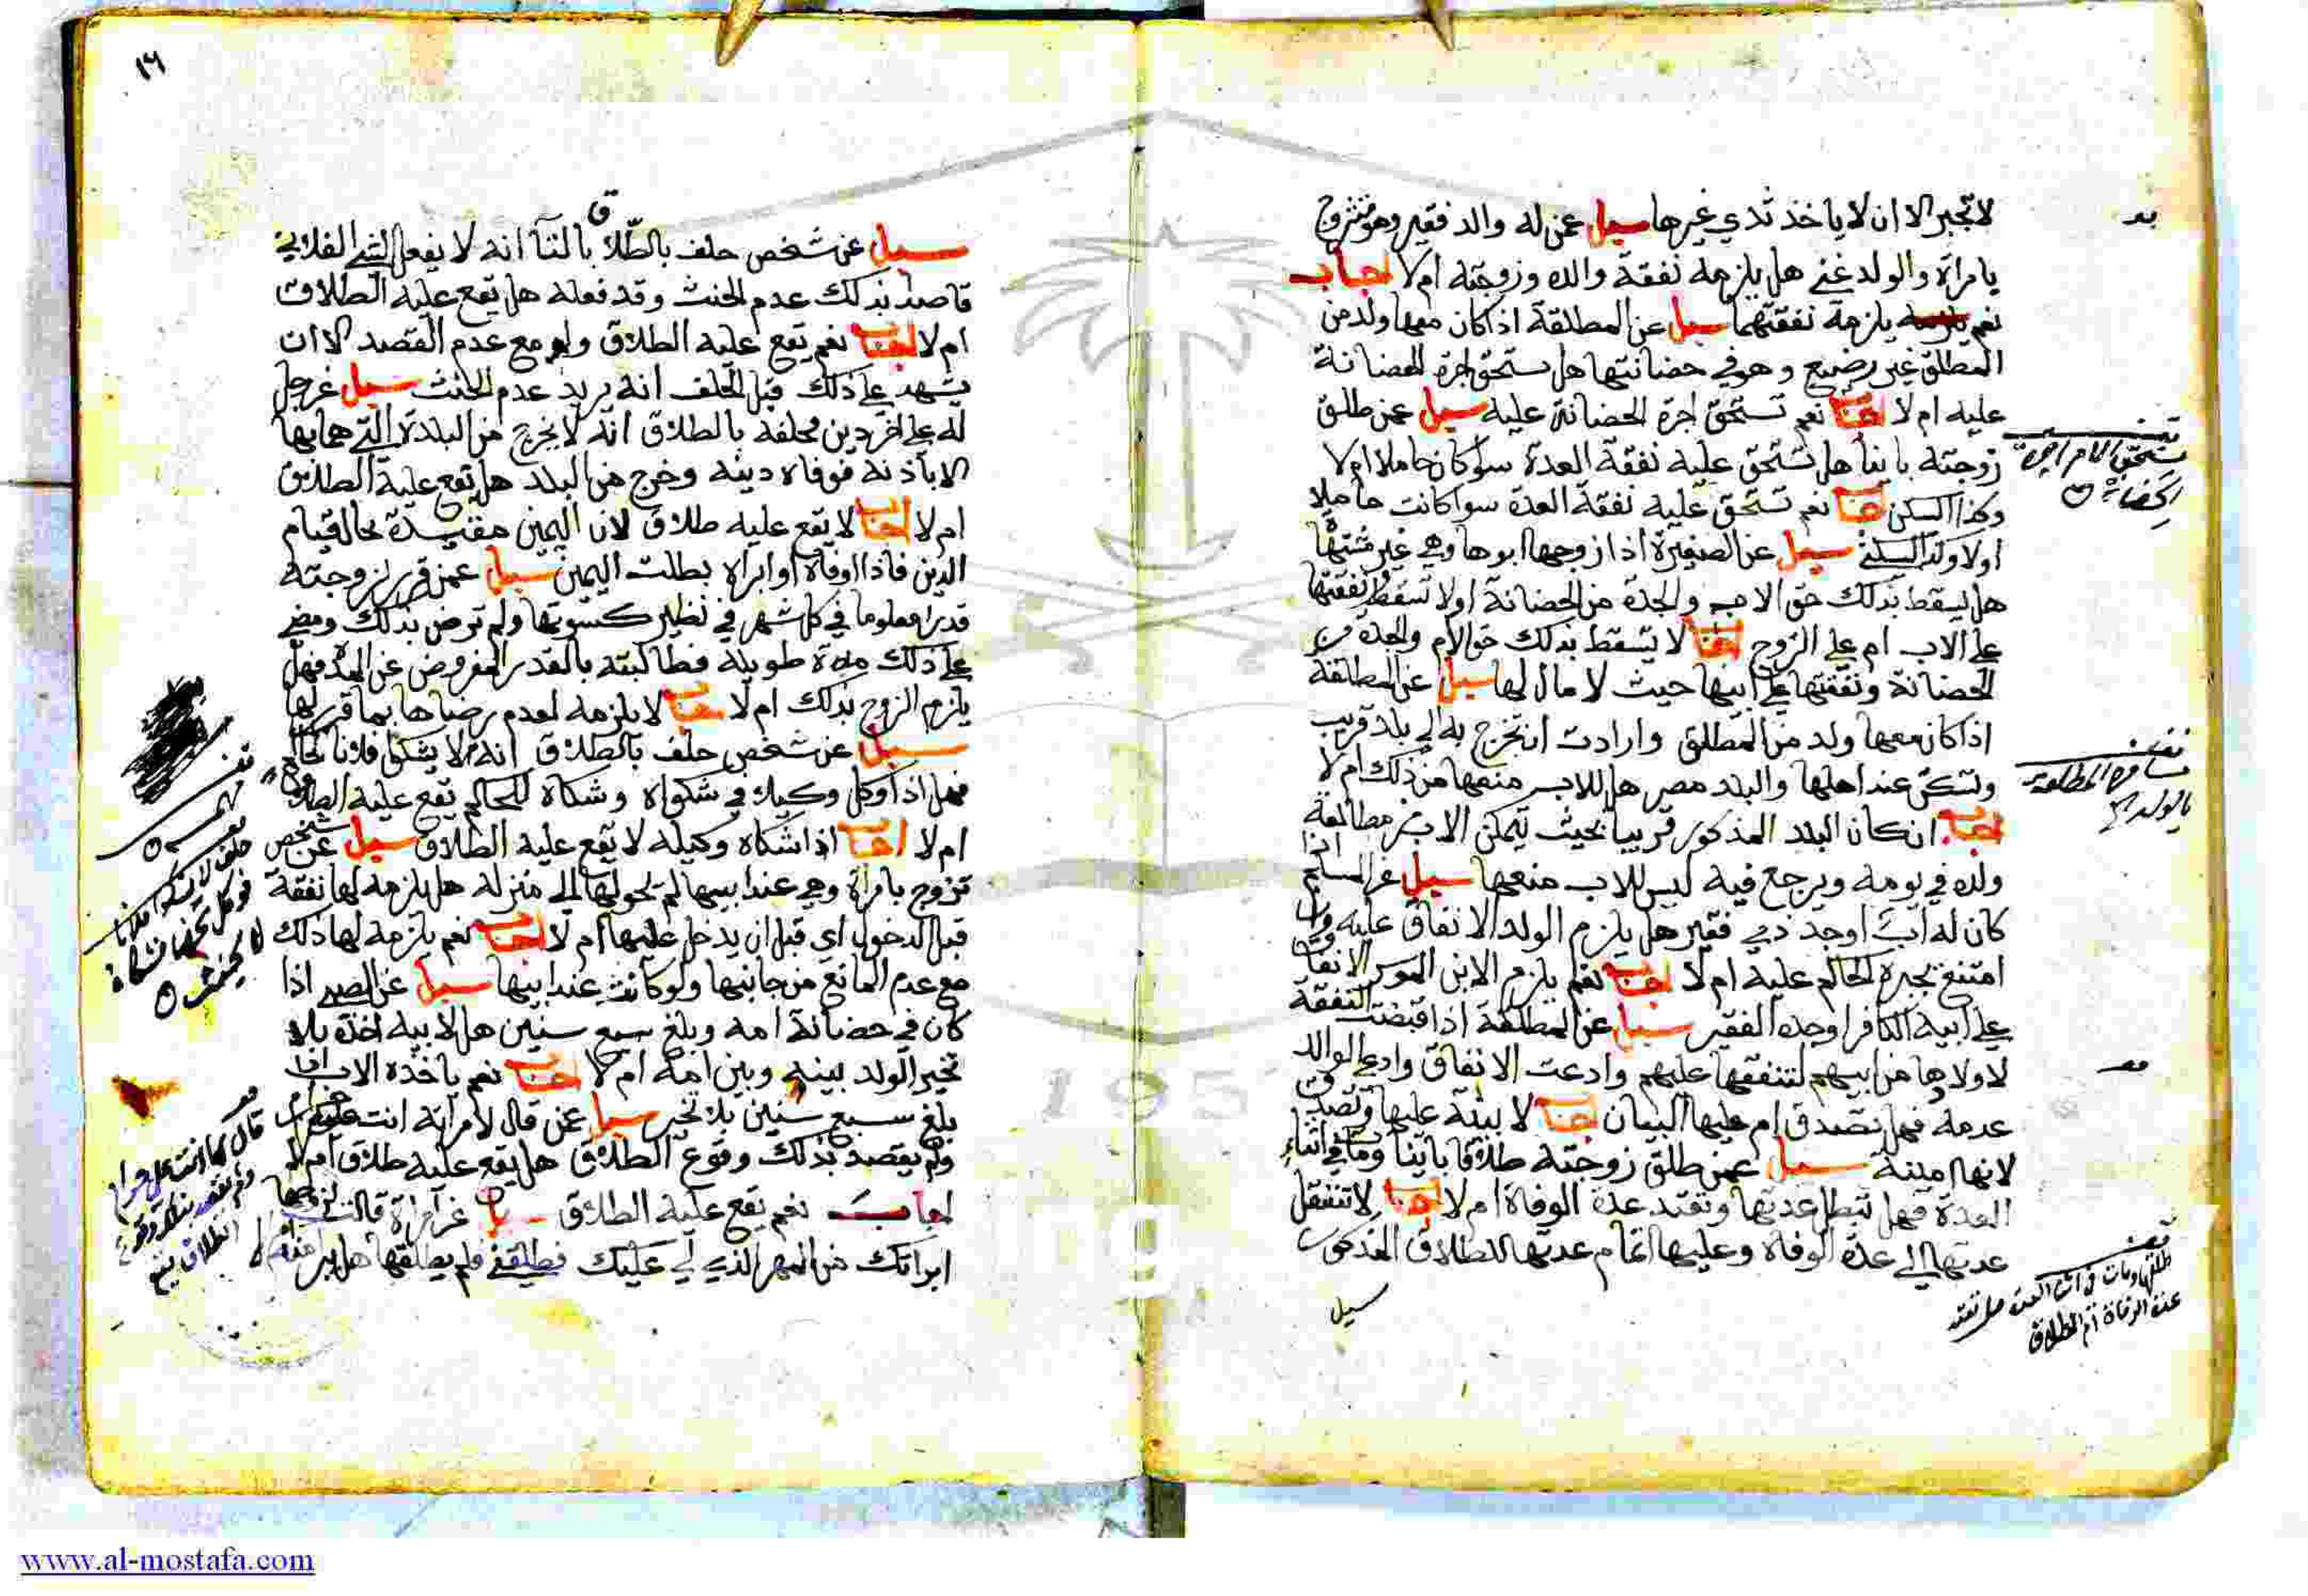 لا تجبر الا ان لا ياخذ ثدي غيرها سيل عمن له والد فقير وهو متزوج
بامراة والولد غني هل يلزمه نفقة والده وزوجته ام لا اجاب
نعم يلزمه نفقتهما سيل عن المطلقة اذا كان معها ولد من
المطلق غير رضيع وهو في حضانتها هل تستحق اجرة الحضانة
عليه ام لا اجاب نعم تستحق اجرة الحضانة عليه سيل عمن طلق
زوجته باينا هل تستحق عليه نفقة العدة سوا كان حاملا ام لا
وكذا السكنى اجاب نعم تستحق عليه نفقة العدة سوا كانت حاملا
او لا وكذا السكنى سيل عن الصغيرة اذا زوجها ابوها وهي غير مشتهاة
هل يسقط بذلك حق الام والجدة من الحضانة او لا تسقط ونفقتها
على الاب ام على الزوج اجاب لا يسقط بذلك حق الام والجدة من
الحضانة ونفقتها على ابيها حيث لا مال لها سيل عن المطلقة
اذا كان معها ولد من المطلق وارادت ان تخرج به الى بلد قريب
وتسكن عند اهلها والبلد مصر هل للاب منعها من ذلك ام لا
اجاب ان كان البلد المذكور قريبا بحيث يتمكن الاب من مطالعة
ولده في يومه ويرجع فيه ليس للاب منعها سيل عن المسلم اذا
كان له اب او جد ذمي فقير هل يلزم الولد الانفاق عليه وان
امتنع يجبره الحاكم عليه ام لا اجاب نعم يلزم الابن الموسر الانفاق
على ابيه الكافر او جده الفقير سيل عن المطلقة اذا قبضت النفقة
لاولادها من ابيهم لتنفقها عليهم وادعت الانفاق وادعى الوالد
عدمه فهل تصدق ام عليها البيان اجاب لا بينة عليها وتصدق
لانها امينة سيل عمن طلق زوجته طلاقا باينا ومات في اثناء
العدة فهل تبطل عدتها وتعتد عدة الوفاة ام لا اجاب لا تنتقل
عدتها الى عدة الوفاة وعليها اتمام عدتها للطلاق المذكور
سيل
تستحق الام اجرة
الحضانة
مسافرة المطلقة
بالولد
طلقها ومات في اثنا العدة هل تعتد
عدة الوفاة ام الطلاق
١٦
سيل عن شخص حلف بالطلاق بالثلاث انه لا يفعل الشي الفلاني
قاصدا بذلك عدم الحنث وقد فعله هل يقع عليه الطلاق
ام لا اجاب نعم يقع عليه الطلاق ولو مع عدم القصد الا ان
يشهد على ذلك قبل الحلف انه يريد عدم الحنث سيل عن رجل
له على اخر دين فحلفه بالطلاق انه لا يخرج من البلدة التي هما بها
الا باذنه فوفاه دينه وخرج من البلد هل يقع عليه الطلاق
ام لا اجاب لا يقع عليه طلاق لان اليمين مقيدة بحال قيام
الدين فاذا اوفاه او ابراه بطلت اليمين سيل عمن قرر لزوجته
قدرا معلوما في كل شهر في نظير كسوتها ولم ترض بذلك ومضى
على ذلك مدة طويلة فطالبته بالقدر المفروض عن المدة فهل
يلزم الزوج بذلك ام لا اجاب لا يلزمه لعدم رضاها بما قرر لها
سيل عن شخص حلف بالطلاق انه لا يشكي فلانا لحاكم
فهل اذا وكل وكيلا في شكواه وشكاه للحاكم يقع عليه الطلاق
ام لا اجاب اذا شكاه وكيله لا يقع عليه الطلاق سيل عن شخص
تزوج بامراة وهي عند ابيها لم تحولها الى منزله هل يلزمه لها نفقة
قبل الدخول اي قبل ان يدخل عليها ام لا اجاب نعم يلزمه لها ذلك
مع عدم المانع من جانبها ولو كانت عند ابيها سيل عن الصبي اذا
كان في حضانة امه وبلغ سبع سنين هل لابيه اخذه بلا
تخيير الولد بينه وبين امه ام لا اجاب نعم ياخذه الاب اذا
بلغ سبع سنين بلا تخير سيل عمن قال لامراته انت علي حرام
ولم يقصد بذلك وقوع الطلاق هل يقع عليه طلاق ام لا
اجاب نعم يقع عليه الطلاق سيل عن امراة قالت لزوجها
ابراتك من المهر الذي لي عليك فطلقني ولم يطلقها هل يبرا منه ام لا
حلف لا يشكو فلانا
لا يحنث
قال لها انت علي حرام
ولم يقصد بذلك وقوع
الطلاق يقع
www.al-mostafa.com